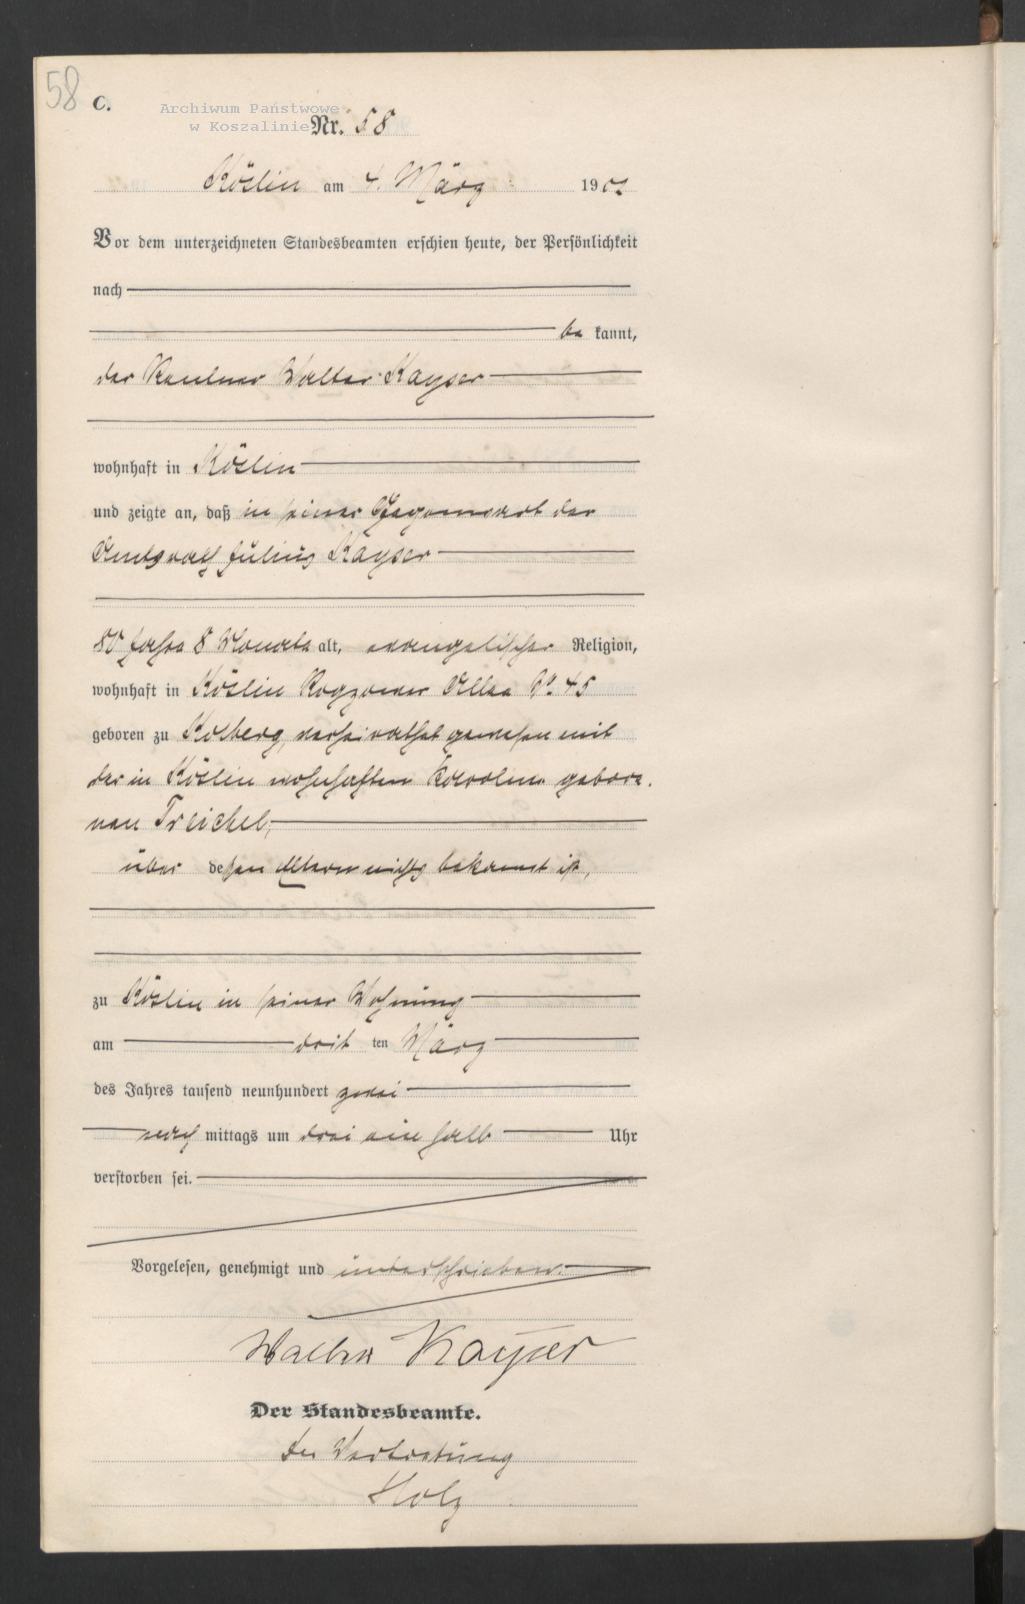 58
C.
Archiwum Państwowe
w Koszalinie
Nr. 58
Köslin am 4. März 1902
Vor dem unterzeichneten Standesbeamten erschien heute, der Persönlichkeit
nach
be kannt,
der Rentner Walter Kayser
wohnhaft in Köslin
und zeigte an, daß in seiner Gegenwart der
Amtsrath Julius Kayser
80 Jahre 8 Monate alt, evangelischer Religion,
wohnhaft in Köslin Rogzower Allee No 45
geboren zu Kolberg, verheirathet gewesen mit
der in Köslin wohnhaften Karoline gebore-
nen Treichel,
über dessen Eltern nichts bekannt ist,
zu Köslin in seiner Wohnung
am dritten März
des Jahres tausend neunhundert zwei
nach mittags um drei ein halb Uhr
verstorben sei.
Vorgelesen, genehmigt und unterschrieben.
Walter Kayser
Der Standesbeamte.
In Vertretung
Holz